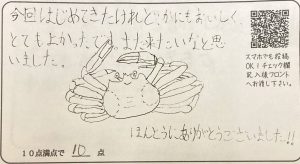 今回はじめてきたけれど、かにもおいしく、
とてもよかったです。また来たいなと思
いました。
ほんとうにありがとうございました!!
10点満点で 10 点
スマホでも投稿
OK!チェック欄
記入後フロント
へお渡し下さい。